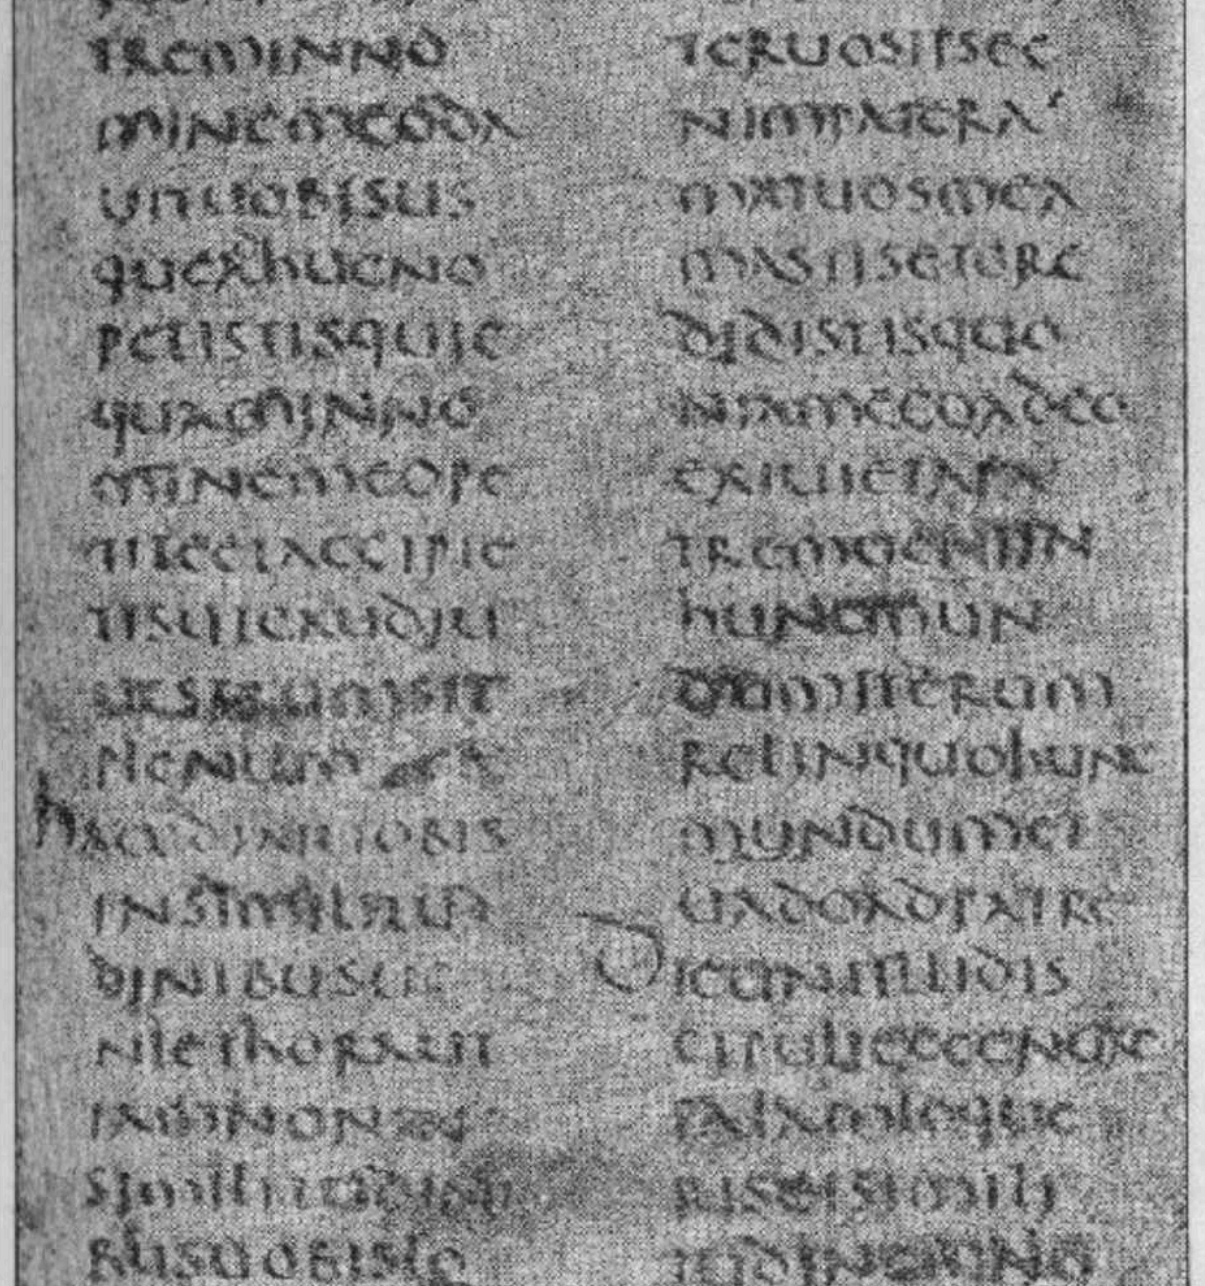 TREMINNO
MINEMEODA
UITUOBISUS
QUEADHUCNO
PETISTISQUIC
QUAMINNO
MINEMEOPE
TITEETACCIPIE
TISUTGAUDIU
UESTRUMSIT
PLENUM
HAECDIXIUOBIS
INSIMILITUD
DINIBUSUE
NITETHORAUT
IAMNON
SIMILITUDINI
BUSUOBISLO
TERUOSIPSEE
NIMPATERA
MATUOSMEA
MASTISETCRE
DIDISTISQUO
NIAMECOADEO
EXIUIETAPA
TREMETUENIIN
HUNCMUN
DUMITERUM
RELINQUOHUNC
MUNDUMET
UADOADPATRE
DICUNTILLIDIS
CIPULIECCENUNC
PALAMLOQUE
RISETSIMILI
TUDINEMNO